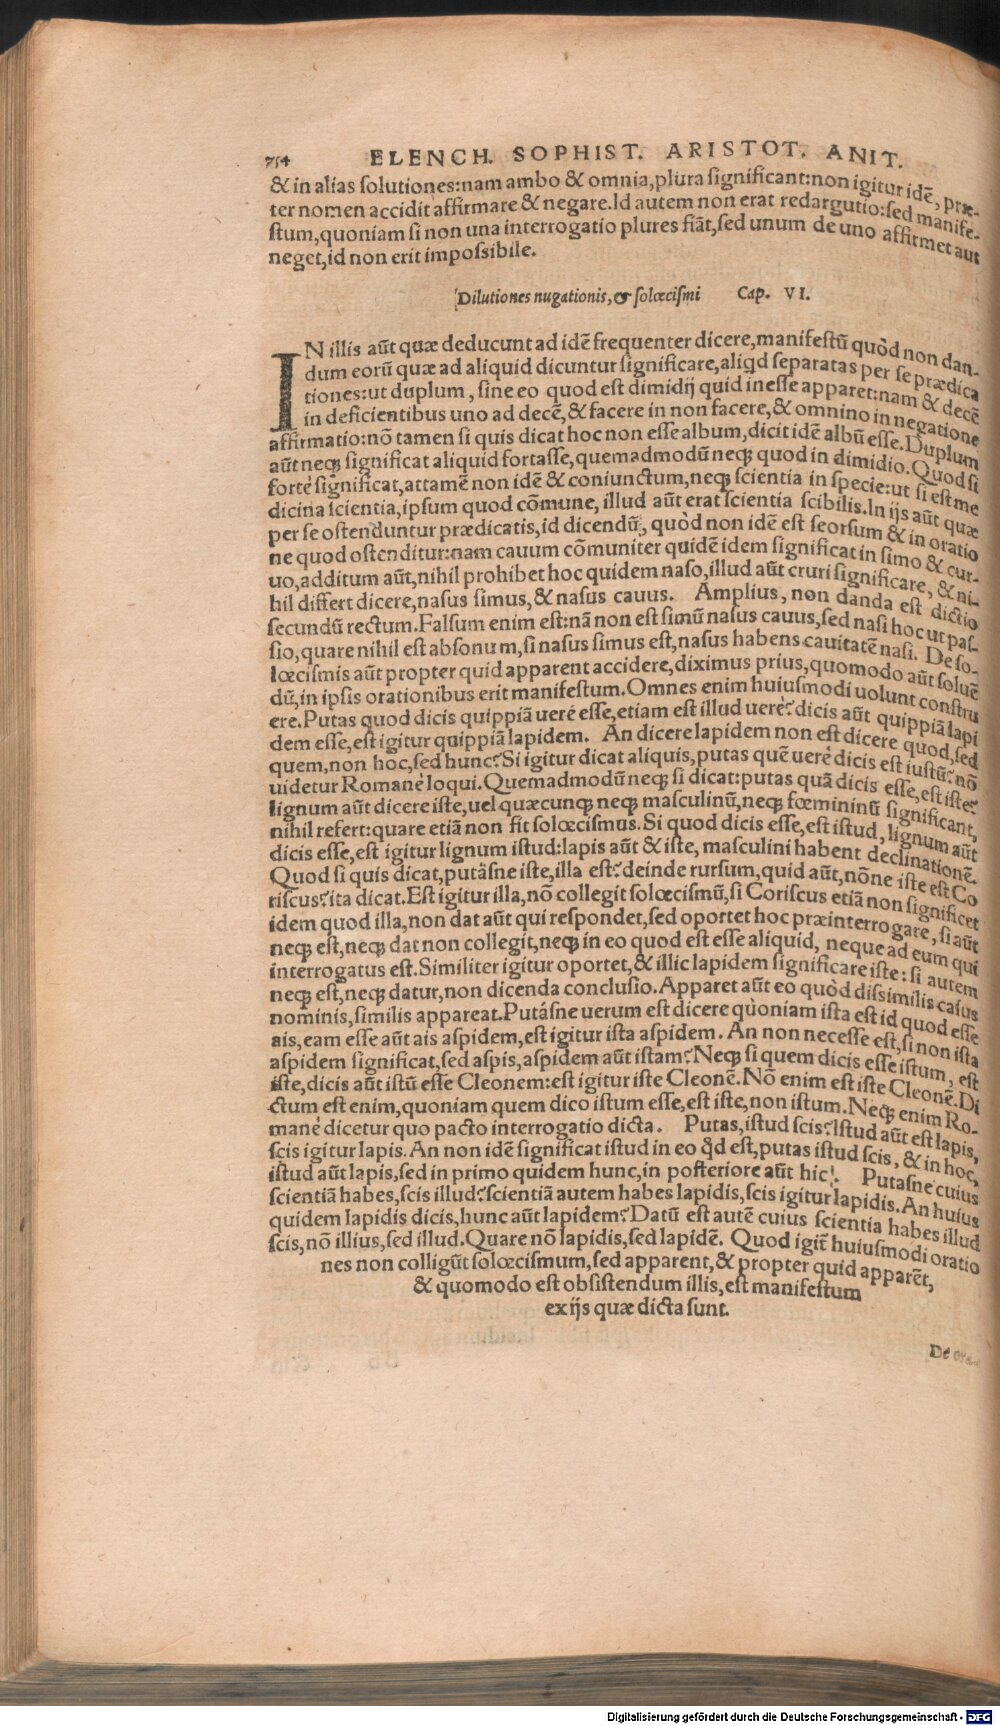 754 ELENCH. SOPHIST. ARISTOT. ANIT.
& in alias solutiones: nam ambo & omnia, plura significant: non igitur idẽ, præ-
ter nomen accidit affirmare & negare. Id autem non erat redargutio: sed manife-
stum, quoniam si non una interrogatio plures fiãt, sed unum de uno affirmet aut
neget, id non erit impossibile.
Dilutiones nugationis, & solœcismi Cap. VI.
IN illis aũt quæ deducunt ad idẽ frequenter dicere, manifestũ quòd non dan-
dum eorũ quæ ad aliquid dicuntur significare, aliqd separatas per se prædica
tiones: ut duplum, sine eo quod est dimidij quid inesse apparet: nam & decẽ
in deficientibus uno ad decẽ, & facere in non facere, & omnino in negatione
affirmatio: nõ tamen si quis dicat hoc non esse album, dicit idẽ albũ esse. Duplum
aũt neqȝ significat aliquid fortasse, quemadmodũ neqȝ quod in dimidio. Quod si
fortè significat, attamẽ non idẽ & coniunctum, neqȝ scientia in specie: ut si est me
dicina scientia, ipsum quod cõmune, illud aũt erat scientia scibilis. In ijs aũt quæ
per se ostenduntur prædicatis, id dicendũ, quòd non idẽ est seorsum & in oratio
ne quod ostenditur: nam cauum cõmuniter quidẽ idem significat in simo & cur-
uo, additum aũt, nihil prohibet hoc quidem naso, illud aũt cruri significare, & ni-
hil differt dicere, nasus simus, & nasus cauus. Amplius, non danda est dictio
secundũ rectum. Falsum enim est: nã non est simũ nasus cauus, sed nasi hoc ut pas-
sio, quare nihil est absonum, si nasus simus est, nasus habens cauitatẽ nasi. De so-
lœcismis aũt propter quid apparent accidere, diximus prius, quomodo aũt soluẽ
dũ, in ipsis orationibus erit manifestum. Omnes enim huiusmodi uolunt constru
ere. Putas quod dicis quippiã ueré esse, etiam est illud uerè? dicis aũt quippiã lapi
dem esse, est igitur quippiã lapidem. An dicere lapidem non est dicere quod, sed
quem, non hoc, sed hunc? Si igitur dicat aliquis, putas quẽ uerè dicis est iustũ? nõ
uidetur Romanè loqui. Quemadmodũ neqȝ si dicat: putas quã dicis esse, est iste?
lignum aũt dicere iste, uel quæcunqȝ neqȝ masculinũ, neqȝ fœmininũ significant,
nihil refert: quare etiã non fit solœcismus. Si quod dicis esse, est istud, lignum aũt
dicis esse, est igitur lignum istud: lapis aũt & iste, masculini habent declinationẽ.
Quod si quis dicat, putásne iste, illa est? deinde rursum, quid aũt, nõne iste est Co
riscus? ita dicat. Est igitur illa, nõ collegit solœcismũ, si Coriscus etiã non significet
idem quod illa, non dat aũt qui respondet, sed oportet hoc præinterrogare, si aũt
neqȝ est, neqȝ dat non collegit, neqȝ in eo quod est esse aliquid, neque ad eum qui
interrogatus est. Similiter igitur oportet, & illic lapidem significare iste: si autem
neqȝ est, neqȝ datur, non dicenda conclusio. Apparet aũt eo quòd dissimilis casus
nominis, similis appareat. Putásne uerum est dicere quoniam ista est id quod esse
ais, eam esse aũt ais aspidem, est igitur ista aspidem. An non necesse est, si non ista
aspidem significat, sed aspis, aspidem aũt istam? Neqȝ si quem dicis esse istum, est
iste, dicis aũt istũ esse Cleonem: est igitur iste Cleonẽ. Nõ enim est iste Cleonẽ. Di
ctum est enim, quoniam quem dico istum esse, est iste, non istum. Neqȝ enim Ro-
manè dicetur quo pacto interrogatio dicta. Putas, istud scis? Istud aũt est lapis,
scis igitur lapis. An non idẽ significat istud in eo qd est, putas istud scis, & in hoc,
istud aũt lapis, sed in primo quidem hunc, in posteriore aũt hic?. Putasne cuius
scientiã habes, scis illud? scientiã autem habes lapidis, scis igitur lapidis. An huius
quidem lapidis dicis, hunc aũt lapidem? Datũ est autẽ cuius scientia habes illud
scis, nõ illius, sed illud. Quare nõ lapidis, sed lapidẽ. Quod igit̃ huiusmodi oratio
nes non colligũt solœcismum, sed apparent, & propter quid apparẽt,
& quomodo est obsistendum illis, est manifestum
ex ijs quæ dicta sunt.
De
Digitalisierung gefördert durch die Deutsche Forschungsgemeinschaft - DFG